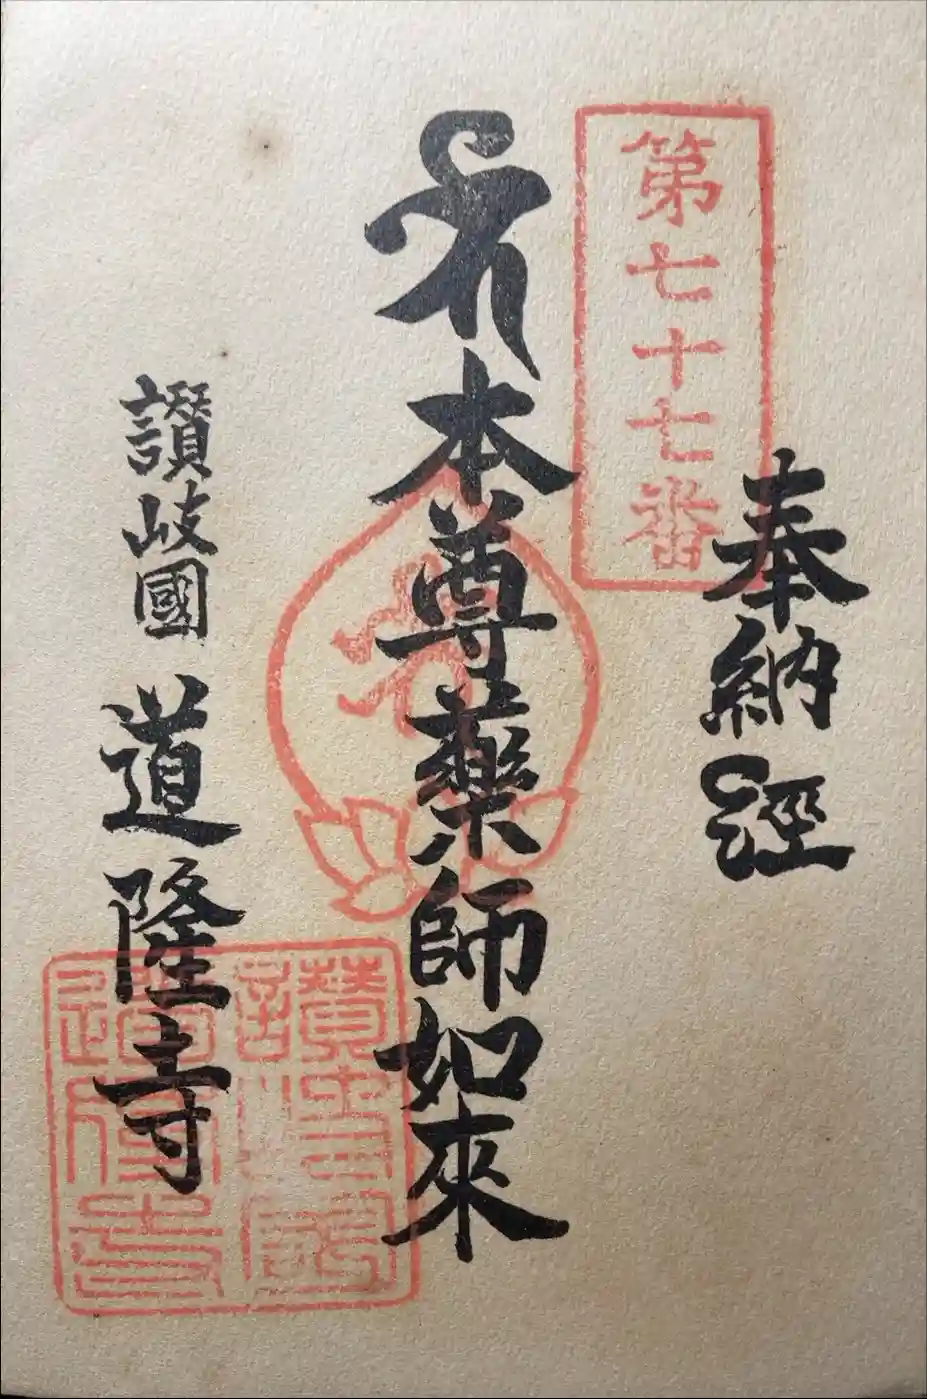 第七十七番
奉納經
本尊藥師如來
讃岐國 道隆寺
讃岐國
道隆寺